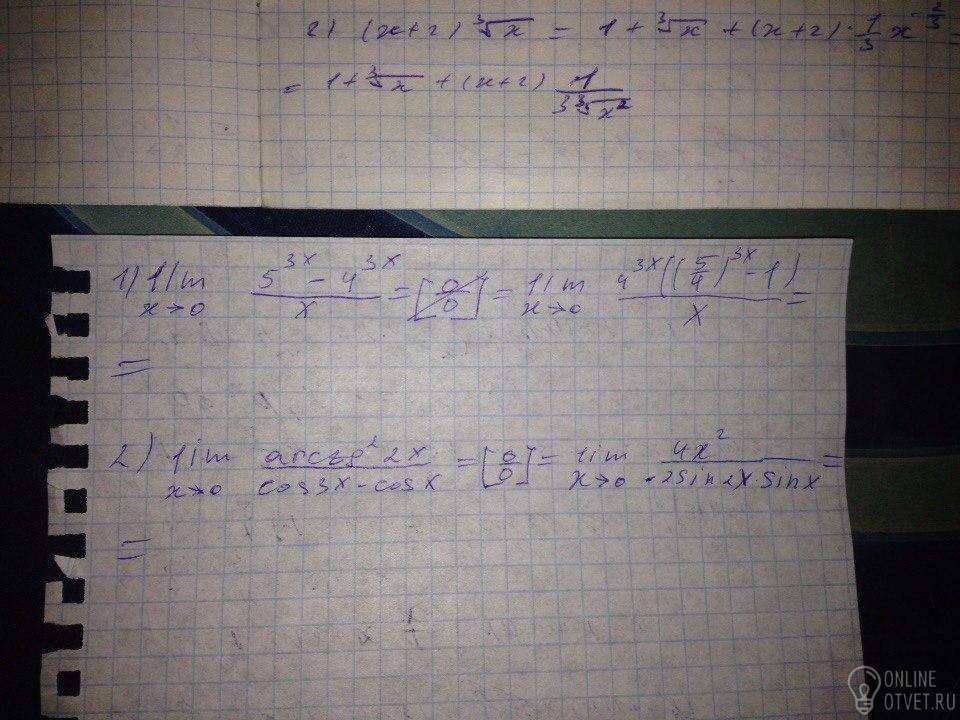 2) (x+2) ∛x = 1 + ∛x + (x+2) · 1/3 x^(-2/3) =
= 1 + ∛x + (x+2) 1/(3∛x²)
1) lim x→0 (5^(3x) - 4^(3x))/x = [0/0] = lim x→0 (4^(3x)((5/4)^(3x) - 1))/x =
=
2) lim x→0 (arctg² 2x)/(cos3x - cosx) = [0/0] = lim x→0 (4x²)/(-2sin2x·sinx) =
=
ONLINE
OTVET.RU